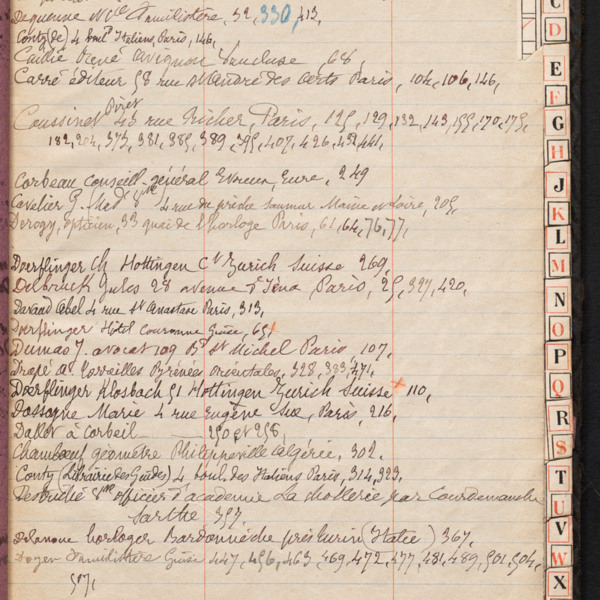 Dequenne Nlle Familistère, 52, 330, 413,
Conty (de) 4 boult Italiens, Paris, 146,
Caillié René Avignon Vaucluse, 68,
Carré éditeur 58 rue St André des Arts Paris, 104, 106, 146,
Pivet
Coussinet 43 rue Richer Paris, 125, 129, 132, 143, 155, 170, 175,
182, 204, 373, 381, 385, 389, 395, 407, 426, 432, 441,
Corbeau conseil-général Evreux, Eure, 249
Cavelier G. 4 rue du prêche Saumur Maine et Loire, 205,
Derogy, opticien, 33 quai de l'horloge Paris, 61, 64, 76, 77,
Doerflinger Ch Hottingen Cn Zurich Suisse 269,
Delbruck Jules 28 avenue d'Iéna, Paris, 25, 397, 420,
Davaud Abel 4 rue St Anastase Paris, 313,
Doerflinger Hôtel Couronne Guise, 65,
Dumas J. avocat 109 Bd St Michel Paris, 107,
à Corneilles Pyrénées orientales, 328, 333, 471
Doerflinger Klosbach 51 Hottingen Zurich Suisse 110,
Dassogne Marie 4 rue Eugène Sue, Paris, 216,
Dallot à Corbeil 250 et 258,
Chamboeuf géomètre Philippeville Algérie, 302.
Conty (Librairie des Guides) 4 boul. des Italiens Paris, 314, 323,
officier d'académie La chollerie par Courdemanche
Sarthe 357
Delanoue horloger Bardonnèche près Turin (Italie) 367,
Doyen Familistère Guise 447, 456, 463, 469, 472, 477, 481, 489, 501, 504,
507,
C
D
E
F
G
H
J
K
L
M
N
O
P
Q
R
S
T
U
V
W
X